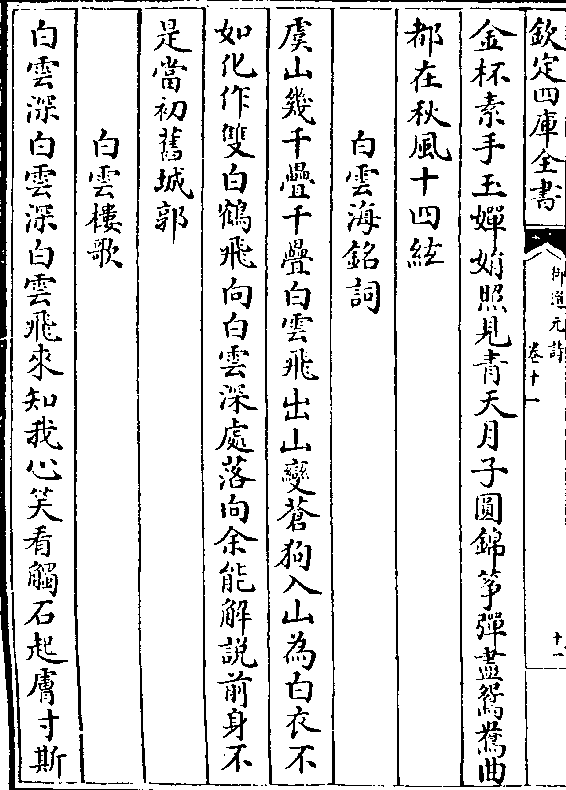 欽定四庫全書
御選元詩
卷十一
十一
金杯素手玉嬋娟照見青天月子圓錦筝彈盡鴛鴦曲
都在秋風十四絃
白雲海銘詞
虞山幾千疊千疊白雲飛出山變蒼狗入山為白衣不
如化作雙白鶴飛向白雲深處落向余能解說前身不
是當初舊城郭
白雲樓歌
白雲深白雲深白雲飛來知我心笑看觸石起膚寸斯